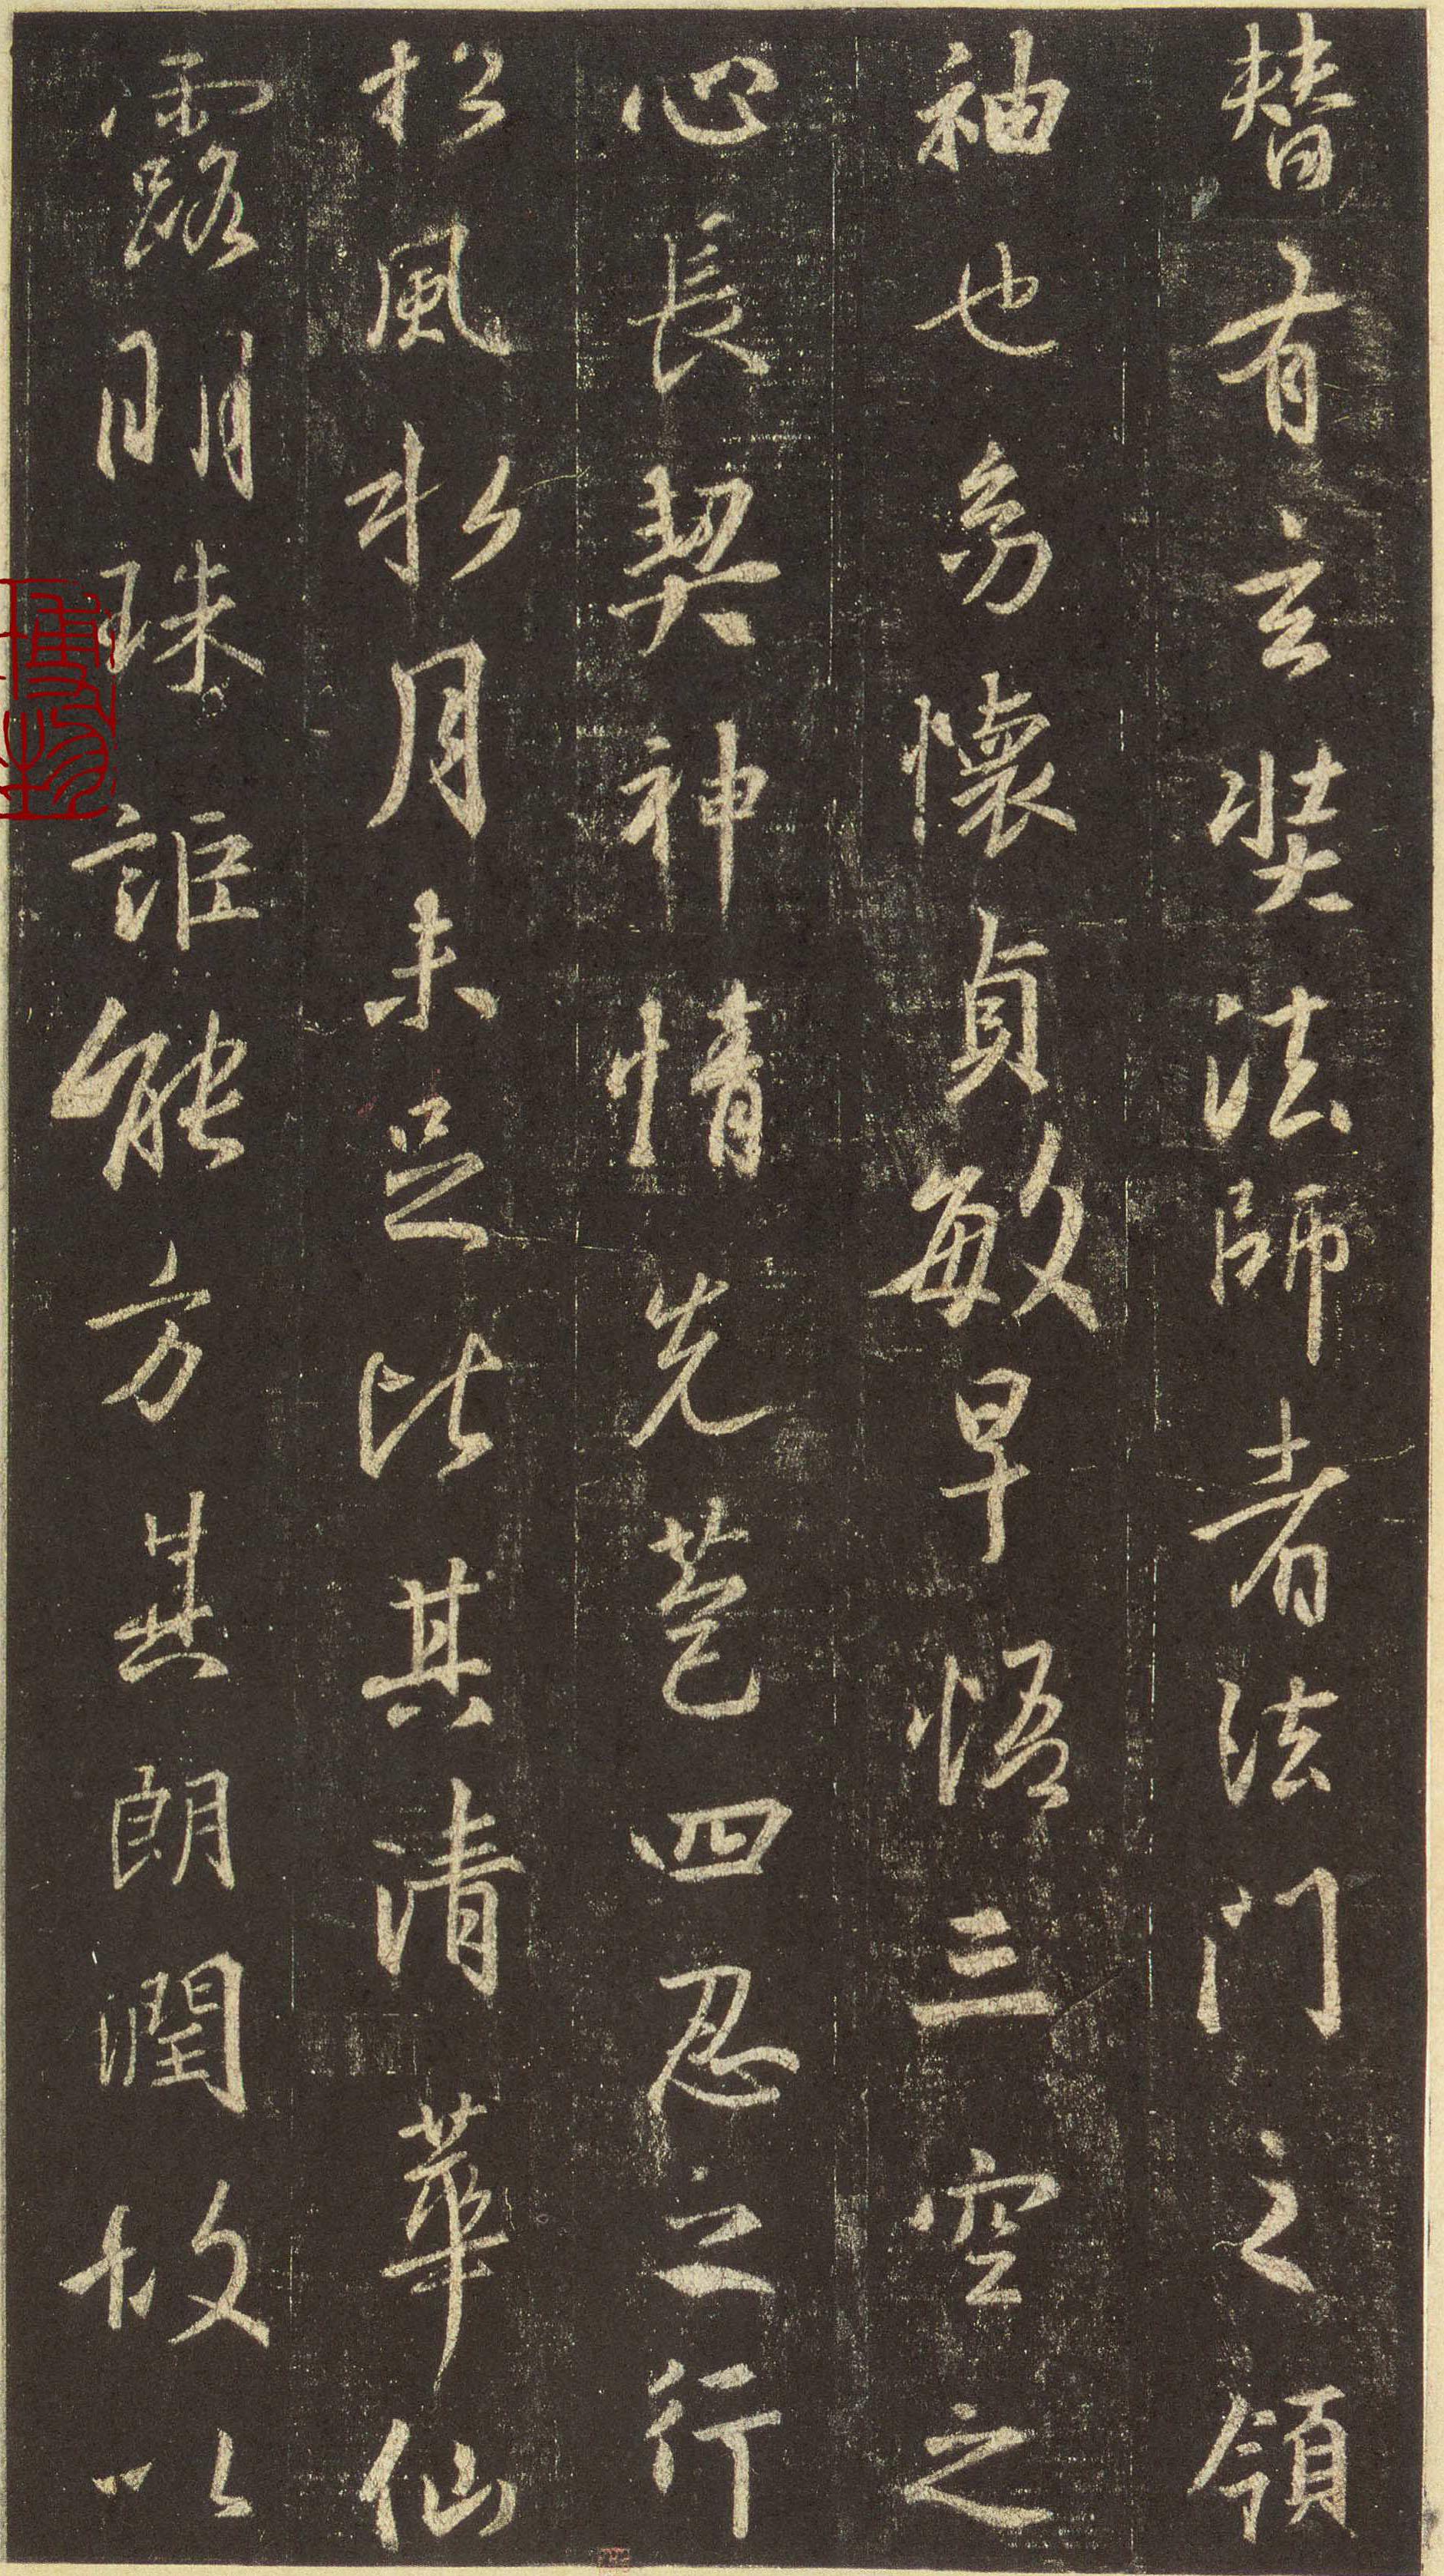 替有玄奘法師者法門之領
袖也㓜懷貞敏早悟三空之
心長契神情先苞四忍之行
松風水月未足比其清華仙
露明珠詎能方其朗潤故以